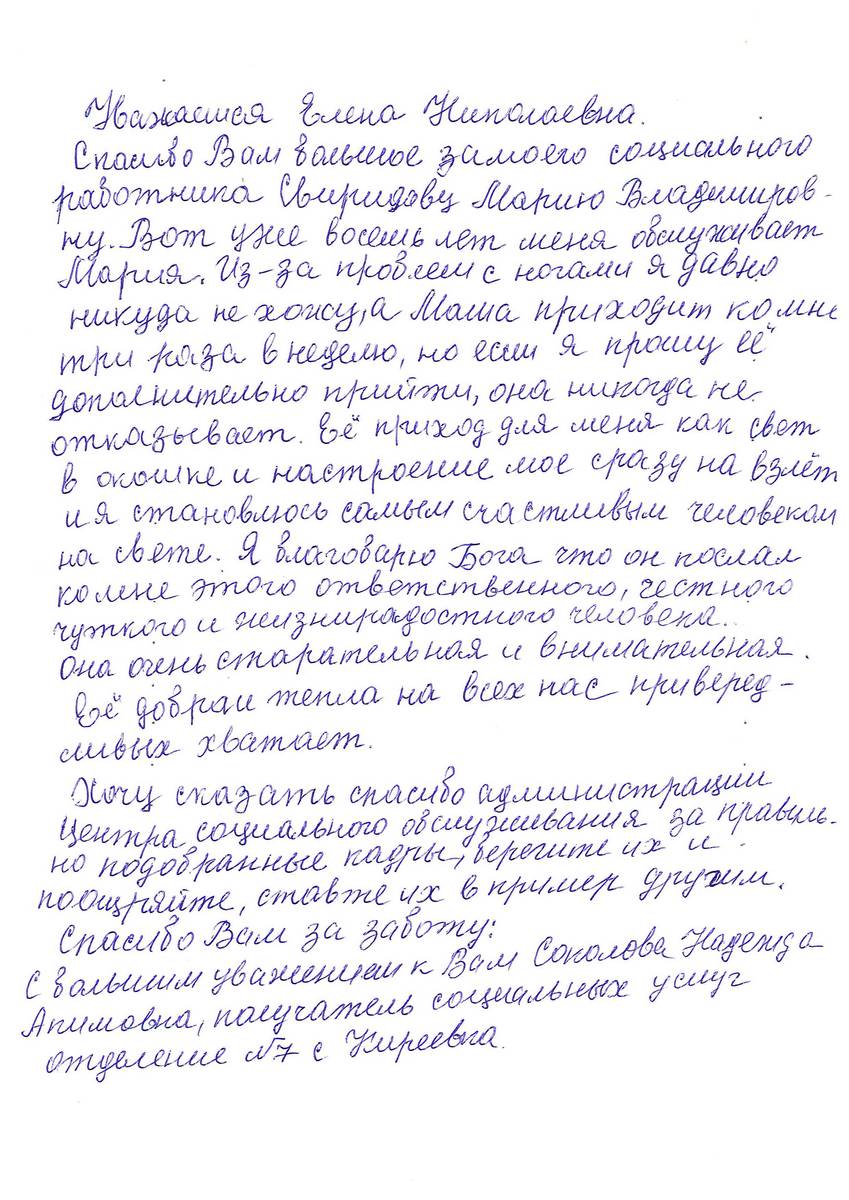 Уважаемая Елена Николаевна.
Спасибо Вам большое за моего социального
работника Свиридову Марию Владимиров-
ну. Вот уже восемь лет меня обслуживает
Мария. Из-за проблем с ногами я давно
никуда не хожу, а Маша приходит ко мне
три раза в неделю, но если я прошу её
дополнительно прийти, она никогда не
отказывает. Её приход для меня как свет
в окошке и настроение мое сразу на взлёт
и я становлюсь самым счастливым человеком
на свете. Я благодарю Бога что он послал
ко мне этого ответственного, честного
чуткого и жизнирадостного человека.
Она очень старательная и внимательная.
Её добра и тепла на всех нас приверед-
ливых хватает.
Хочу сказать спасибо администрации
Центра социального обслуживания за правиль-
но подобранные кадры, берегите их и
поощряйте, ставте их в пример другим.
Спасибо Вам за заботу!
С большим уважением к Вам Соколова Надежда
Акимовна, получатель социальных услуг
отделение №7 с Киреевка.